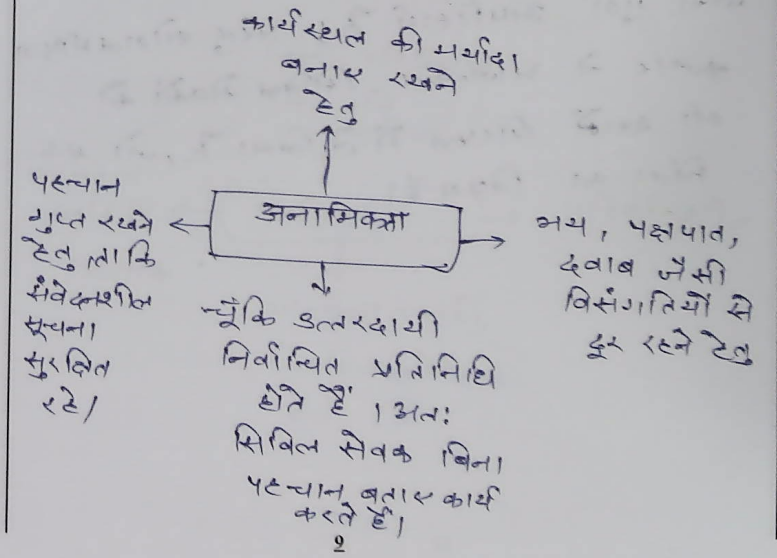 कार्यस्थल की मर्यादा
बनाए रखने
हेतु
पहचान
गुप्त रखने
हेतु, ताकि
संवेदनशील
सूचना
सुरक्षित
रहे।
अनामिकता
भय, पक्षपात,
दबाव जैसी
विसंगतियों से
दूर रहने हेतु
चूँकि उत्तरदायी
निर्वाचित प्रतिनिधि
होते हैं। अतः
सिविल सेवक बिना
पहचान बताए कार्य
करते हैं।
2